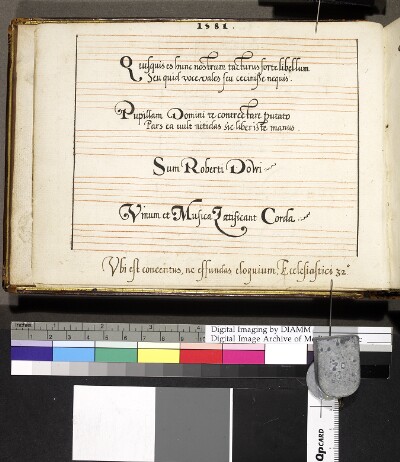 1581.
Quisquis es hunc nostrum tacturus forte libellum
Seu quid voce vales seu cecinisse nequis.
Pupillam Domini te contrectare putato
Pars ea vult nitidas sic liber iste manus.
Sum Roberti Dowi
Vinum et Musica Lætificant Corda
Ubi est concentus, ne effundas eloquium. Ecclesiastici 32°
inches
1
2
3
Digital Imaging by DIAMM
Digital Image Archive of
QPCARD